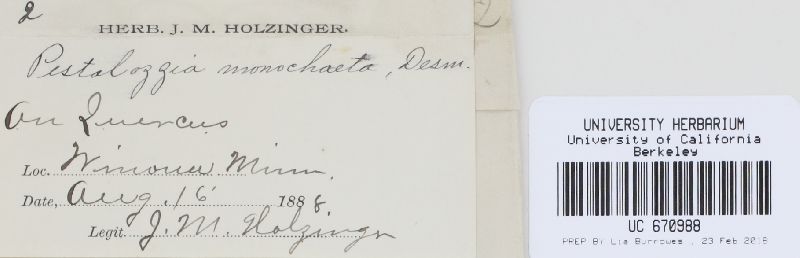 2
HERB. J. M. HOLZINGER.
Pestalozzia monochaeta, Desm.
On Quercus
Loc. Winona Minn.
Date, Aug. 16 1888
Legit. J. M. Holzinger
2
UNIVERSITY HERBARIUM
University of California
Berkeley
UC 670988
PREP BY Lia Burrowes , 23 Feb 2016